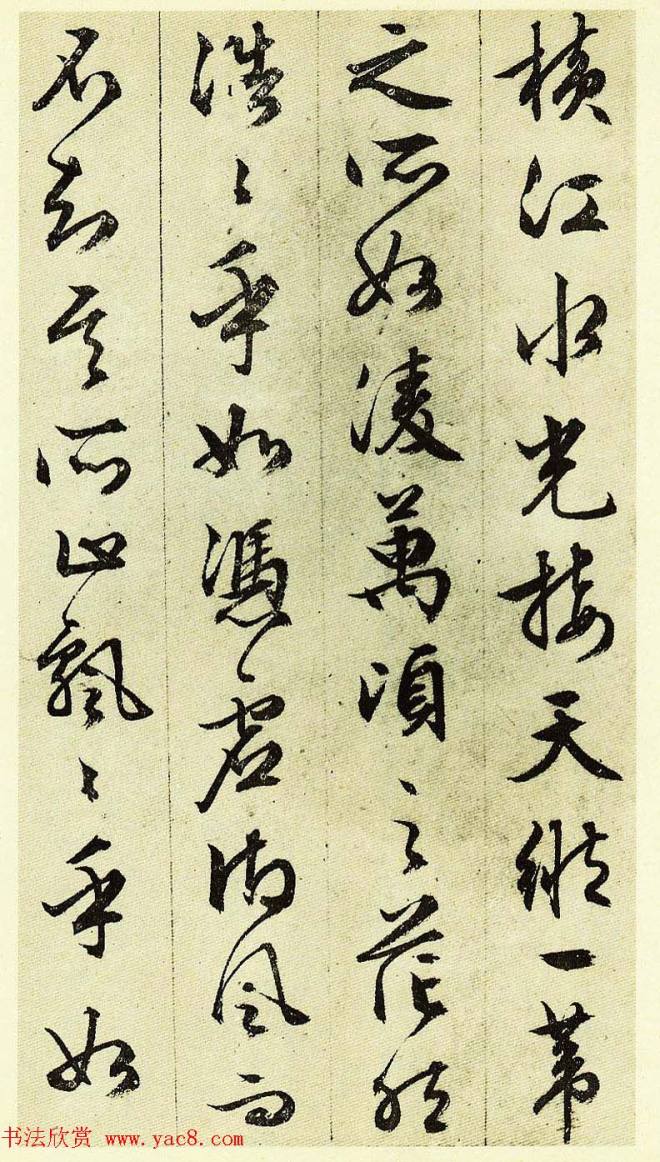 橫江水光接天縱一葦
之所如凌萬頃之茫然
浩〻乎如馮虛御風而
不知其所止飄〻乎如
书法欣赏 www.yac8.com